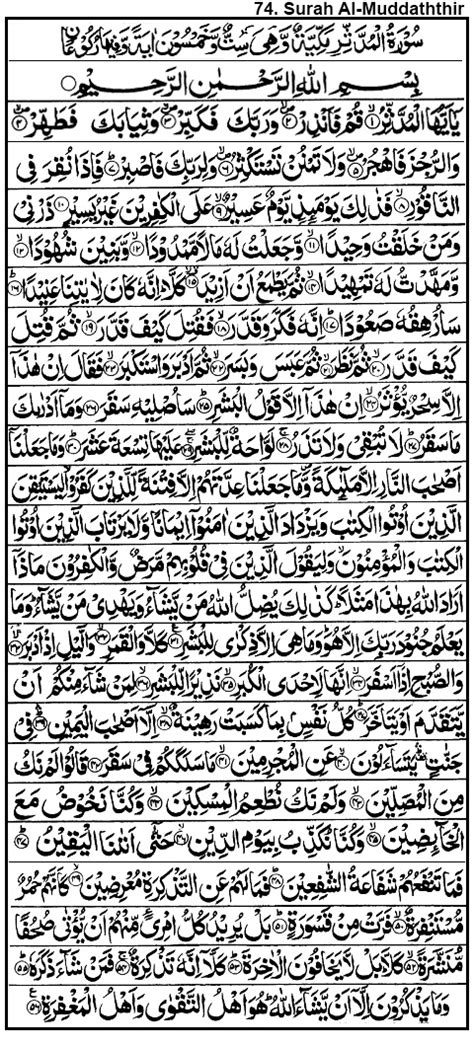 74. Surah Al-Muddaththir
سُوْرَةُ الْمُدَّثِّرِ مَكِّيَّةٌ وَّهِيَ سِتٌّ وَّخَمْسُوْنَ اٰيَةً وَّفِيْهَا رُكُوْعَانِ
بِسْمِ اللّٰهِ الرَّحْمٰنِ الرَّحِيْمِ
يٰۤاَيُّهَا الْمُدَّثِّرُ ۙ﴿۱﴾ قُمْ فَاَنْذِرْ ۪ۙ﴿۲﴾ وَرَبَّكَ فَكَبِّرْ ۪ۙ﴿۳﴾ وَثِيَابَكَ فَطَهِّرْ ۪ۙ﴿۴﴾
وَالرُّجْزَ فَاهْجُرْ ۪ۙ﴿۵﴾ وَلَا تَمْنُنْ تَسْتَكْثِرُ ۪ۙ﴿۶﴾ وَلِرَبِّكَ فَاصْبِرْ ؕ﴿۷﴾ فَاِذَا نُقِرَ فِي
النَّاقُوْرِ ۙ﴿۸﴾ فَذٰلِكَ يَوْمَئِذٍ يَّوْمٌ عَسِيْرٌ ۙ﴿۹﴾ عَلَى الْكٰفِرِيْنَ غَيْرُ يَسِيْرٍ ﴿۱۰﴾ ذَرْنِيْ
وَمَنْ خَلَقْتُ وَحِيْدًا ۙ﴿۱۱﴾ وَّجَعَلْتُ لَهٗ مَالًا مَّمْدُوْدًا ۙ﴿۱۲﴾ وَّبَنِيْنَ شُهُوْدًا ۙ﴿۱۳﴾
وَّمَهَّدْتُّ لَهٗ تَمْهِيْدًا ۙ﴿۱۴﴾ ثُمَّ يَطْمَعُ اَنْ اَزِيْدَ ۙ﴿۱۵﴾ كَلَّا ؕ اِنَّهٗ كَانَ لِاٰيٰتِنَا عَنِيْدًا ؕ﴿۱۶﴾
سَاُرْهِقُهٗ صَعُوْدًا ؕ﴿۱۷﴾ اِنَّهٗ فَكَّرَ وَقَدَّرَ ۙ﴿۱۸﴾ فَقُتِلَ كَيْفَ قَدَّرَ ۙ﴿۱۹﴾ ثُمَّ قُتِلَ
كَيْفَ قَدَّرَ ۙ﴿۲۰﴾ ثُمَّ نَظَرَ ۙ﴿۲۱﴾ ثُمَّ عَبَسَ وَبَسَرَ ۙ﴿۲۲﴾ ثُمَّ اَدْبَرَ وَاسْتَكْبَرَ ۙ﴿۲۳﴾ فَقَالَ اِنْ هٰذَاۤ
اِلَّا سِحْرٌ يُّؤْثَرُ ۙ﴿۲۴﴾ اِنْ هٰذَاۤ اِلَّا قَوْلُ الْبَشَرِ ؕ﴿۲۵﴾ سَاُصْلِيْهِ سَقَرَ ﴿۲۶﴾ وَمَاۤ اَدْرٰىكَ
مَا سَقَرُ ؕ﴿۲۷﴾ لَا تُبْقِيْ وَلَا تَذَرُ ۚ﴿۲۸﴾ لَوَّاحَةٌ لِّلْبَشَرِ ۚۖ﴿۲۹﴾ عَلَيْهَا تِسْعَةَ عَشَرَ ؕ﴿۳۰﴾ وَمَا جَعَلْنَاۤ
اَصْحٰبَ النَّارِ اِلَّا مَلٰٓئِكَةً ۪ وَّمَا جَعَلْنَا عِدَّتَهُمْ اِلَّا فِتْنَةً لِّلَّذِيْنَ كَفَرُوْا ۙ لِيَسْتَيْقِنَ
الَّذِيْنَ اُوْتُوا الْكِتٰبَ وَيَزْدَادَ الَّذِيْنَ اٰمَنُوْۤا اِيْمَانًا وَّلَا يَرْتَابَ الَّذِيْنَ اُوْتُوا
الْكِتٰبَ وَالْمُؤْمِنُوْنَ ۙ وَلِيَقُوْلَ الَّذِيْنَ فِيْ قُلُوْبِهِمْ مَّرَضٌ وَّالْكٰفِرُوْنَ مَاذَاۤ
اَرَادَ اللّٰهُ بِهٰذَا مَثَلًا ؕ كَذٰلِكَ يُضِلُّ اللّٰهُ مَنْ يَّشَآءُ وَيَهْدِيْ مَنْ يَّشَآءُ ؕ وَمَا
يَعْلَمُ جُنُوْدَ رَبِّكَ اِلَّا هُوَ ؕ وَمَا هِيَ اِلَّا ذِكْرٰى لِلْبَشَرِ ﴿۳۱﴾ كَلَّا وَالْقَمَرِ ۙ﴿۳۲﴾ وَالَّيْلِ اِذْ اَدْبَرَ ۙ﴿۳۳﴾
وَالصُّبْحِ اِذَاۤ اَسْفَرَ ۙ﴿۳۴﴾ اِنَّهَا لَاِحْدَى الْكُبَرِ ۙ﴿۳۵﴾ نَذِيْرًا لِّلْبَشَرِ ۙ﴿۳۶﴾ لِمَنْ شَآءَ مِنْكُمْ اَنْ
يَّتَقَدَّمَ اَوْ يَتَاَخَّرَ ؕ﴿۳۷﴾ كُلُّ نَفْسٍۢ بِمَا كَسَبَتْ رَهِيْنَةٌ ۙ﴿۳۸﴾ اِلَّاۤ اَصْحٰبَ الْيَمِيْنِ ؕۛ﴿۳۹﴾ فِيْ
جَنّٰتٍ ؕۛ يَتَسَآءَلُوْنَ ۙ﴿۴۰﴾ عَنِ الْمُجْرِمِيْنَ ۙ﴿۴۱﴾ مَا سَلَكَكُمْ فِيْ سَقَرَ ﴿۴۲﴾ قَالُوْا لَمْ نَكُ
مِنَ الْمُصَلِّيْنَ ۙ﴿۴۳﴾ وَلَمْ نَكُ نُطْعِمُ الْمِسْكِيْنَ ۙ﴿۴۴﴾ وَكُنَّا نَخُوْضُ مَعَ
الْخَآئِضِيْنَ ۙ﴿۴۵﴾ وَكُنَّا نُكَذِّبُ بِيَوْمِ الدِّيْنِ ۙ﴿۴۶﴾ حَتّٰۤى اَتٰىنَا الْيَقِيْنُ ؕ﴿۴۷﴾
فَمَا تَنْفَعُهُمْ شَفَاعَةُ الشّٰفِعِيْنَ ؕ﴿۴۸﴾ فَمَا لَهُمْ عَنِ التَّذْكِرَةِ مُعْرِضِيْنَ ۙ﴿۴۹﴾ كَاَنَّهُمْ حُمُرٌ
مُّسْتَنْفِرَةٌ ۙ﴿۵۰﴾ فَرَّتْ مِنْ قَسْوَرَةٍ ؕ﴿۵۱﴾ بَلْ يُرِيْدُ كُلُّ امْرِئٍ مِّنْهُمْ اَنْ يُّؤْتٰى صُحُفًا
مُّنَشَّرَةً ۙ﴿۵۲﴾ كَلَّا ؕ بَلْ لَّا يَخَافُوْنَ الْاٰخِرَةَ ؕ﴿۵۳﴾ كَلَّاۤ اِنَّهٗ تَذْكِرَةٌ ۚ﴿۵۴﴾ فَمَنْ شَآءَ ذَكَرَهٗ ؕ﴿۵۵﴾
وَمَا يَذْكُرُوْنَ اِلَّاۤ اَنْ يَّشَآءَ اللّٰهُ ؕ هُوَ اَهْلُ التَّقْوٰى وَاَهْلُ الْمَغْفِرَةِ ﴿۵۶﴾